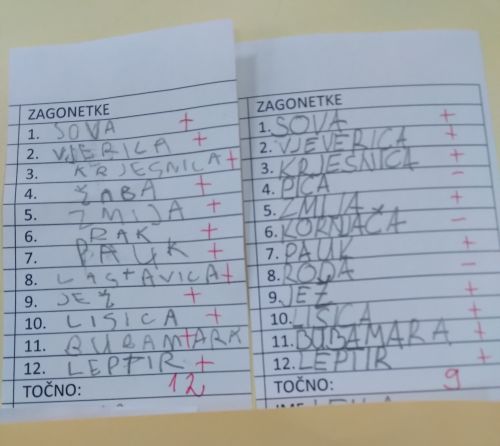 ZAGONETKE
1. SOVA +
2. VJERICA +
3. KRJESNICA +
4. ŽABA +
5. ZMIJA +
6. RAK +
7. PAUK +
8. LASTAVICA +
9. JEŽ +
10. LISICA +
11. BUBAMARK +
12. LEPTIR +
TOČNO: 12
ZAGONETKE
1. SOVA +
2. VJEVERICA +
3. KRJESNICA +
4. PICA –
5. ZMIJA +
6. KORNJAČA –
7. PAUK +
8. RODA –
9. JEŽ +
10. LISICA +
11. BUBAMARA +
12. LEPTIR +
TOČNO: 9